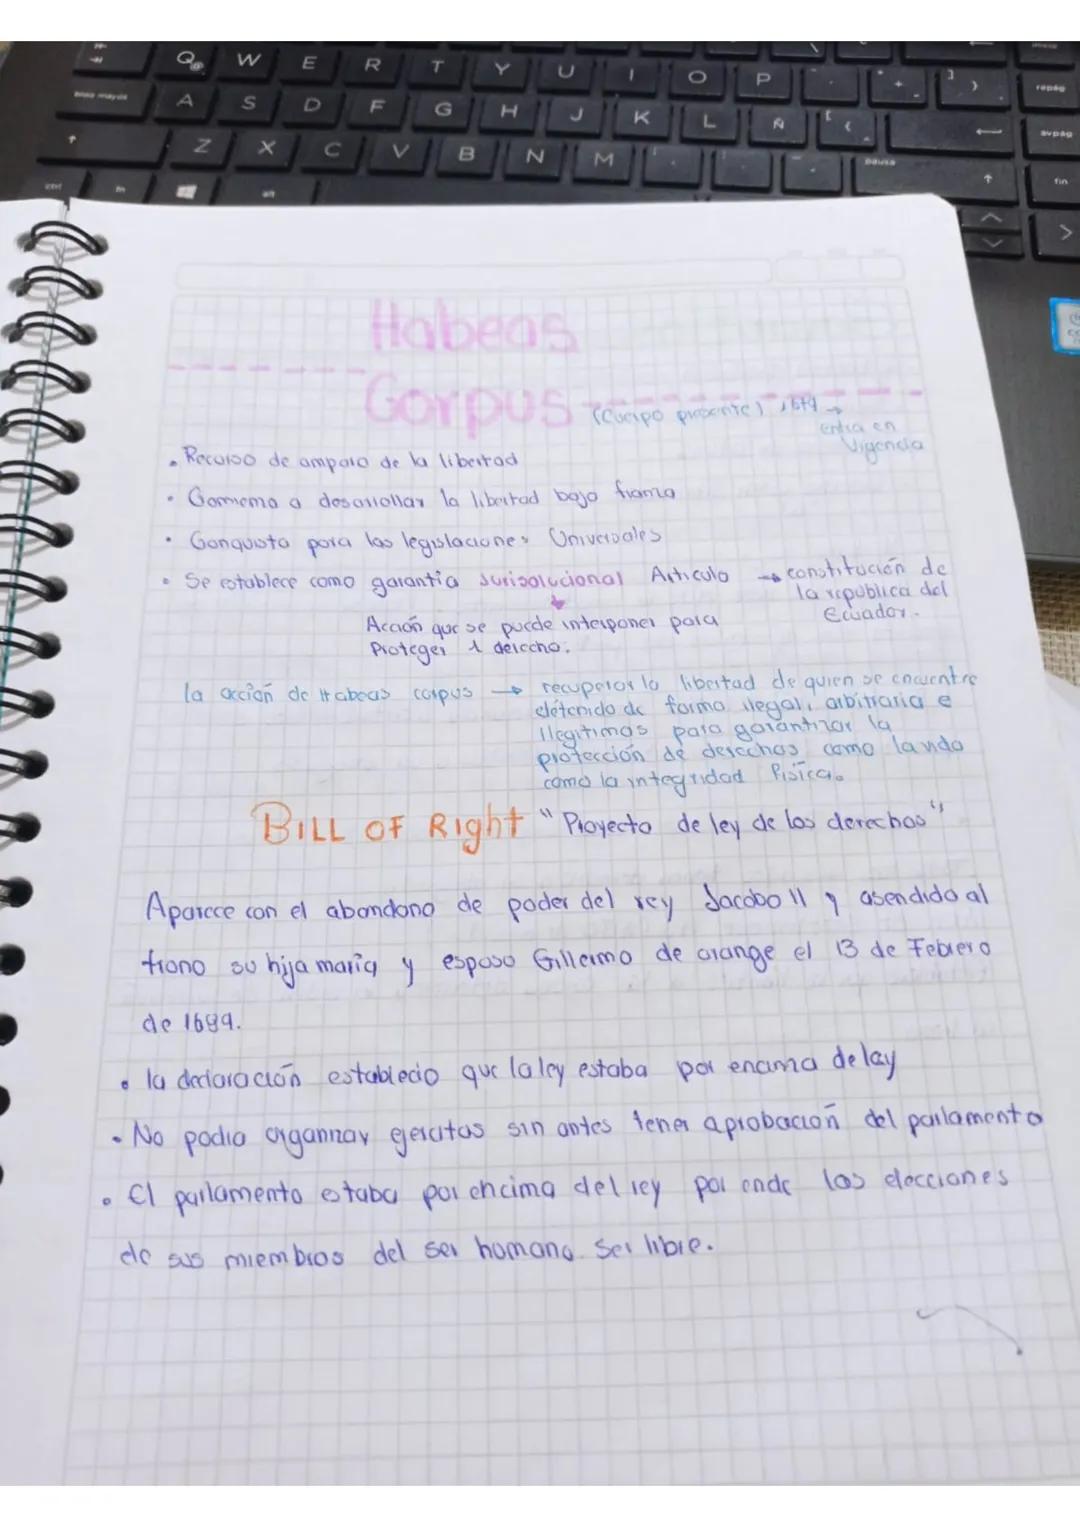 Q W E R T Y U I O P
bloq mayús A S D F G H J K L Ñ
Z X C V B N M
ctrl fn alt
pausa
repág
avpág
fin
Habeas
Corpus (Cuerpo presente) 1679 →
entra en
Vigencia
• Recurso de amparo de la libertad
• Comiema a desarrollar la libertad bajo fiama
• Conquista para las legislaciones Universales
• Se establece como garantía Jurisolucional Articulo → constitución de
la republica del
Ecuador.
Acción que se puede interponer para
Proteger 1 derecho.
la acción de Habeas corpus → recuperar la libertad de quien se encuentre
detenido de forma ilegal, arbitraria e
Ilegitimas para garantizar la
protección de derechos como la vida
como la integridad Física.
BILL OF Right "Proyecto de ley de los derechos"
Aparece con el abandono de poder del rey Jacobo II y asendido al
trono su hija maria y esposo Gillermo de orange el 13 de Febrero
de 1689.
• la declaración establecio que la ley estaba por encima de lay
• No podia organnar ejercitos sin antes tener aprobación del parlamento
• El parlamento estaba por encima del rey por ende las elecciones
de sus miembros del ser humano. Ser libre.